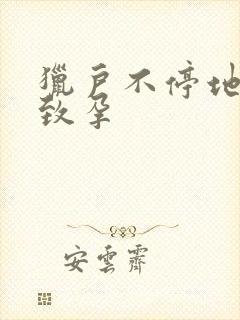 獵戶不停地
致孕
安雲霽